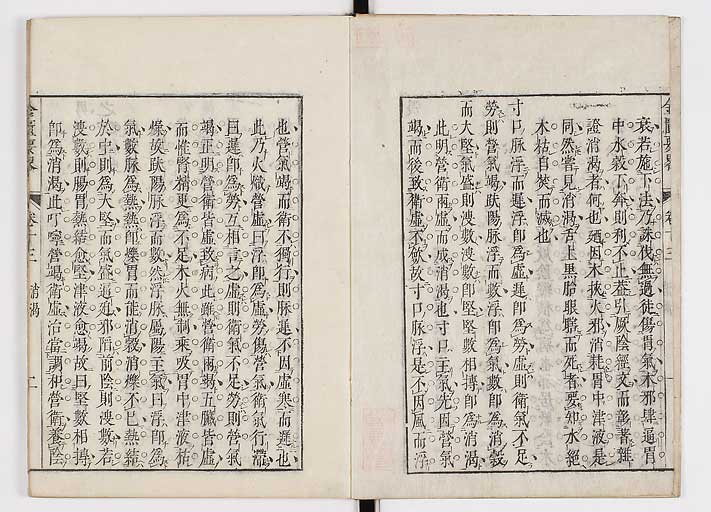 衰若施下法乃誅伐無過徒傷胃氣木邪肆逼胃
中水穀下奔則利不止葢引厥陰經文而彰著雜
證消渴者何也廼因木挾火邪消耗胃中津液是
同然嘗見消渴舌上黑胎眼瞎而死者要知水絕
木枯自焚而滅也
寸口脉浮而遲浮卽為虛遲卽為勞虛則衛氣不足
勞則營氣竭趺陽脉浮而數浮卽為氣數卽為消穀
而大堅氣盛則溲數溲數卽堅堅數相搏卽為消渴
此明營衛兩虛而成消渴也寸口主氣先因營氣
竭而後致衛虛不斂故寸口脉浮是不因風而浮
也營氣竭而衛不獨行則脉遲不因虛寒而遲也
此乃火爍營虛曰浮卽為虛勞傷營氣衛氣行濇
曰遲卽為勞互相言之虛則衛氣不足勞則營氣
竭正明營衛皆虛致病此雖營衛兩竭五臟皆虛
而惟腎精更為不足木火無制乘吸胃中津液枯
燥故趺陽脉浮而數然浮脉屬陽主氣曰浮卽為
氣數脉為熱熱卽爍胃而能消穀消爍不已熱結
於中則為大堅而氣盛逼廹邪陷前陰則溲數若
溲數則腸胃熱結愈堅津液愈竭故曰堅數相搏
卽為消渴此叮嚀營竭衛虛治當調和營衛養陰
金匱要畧
卷十三
消渴
二